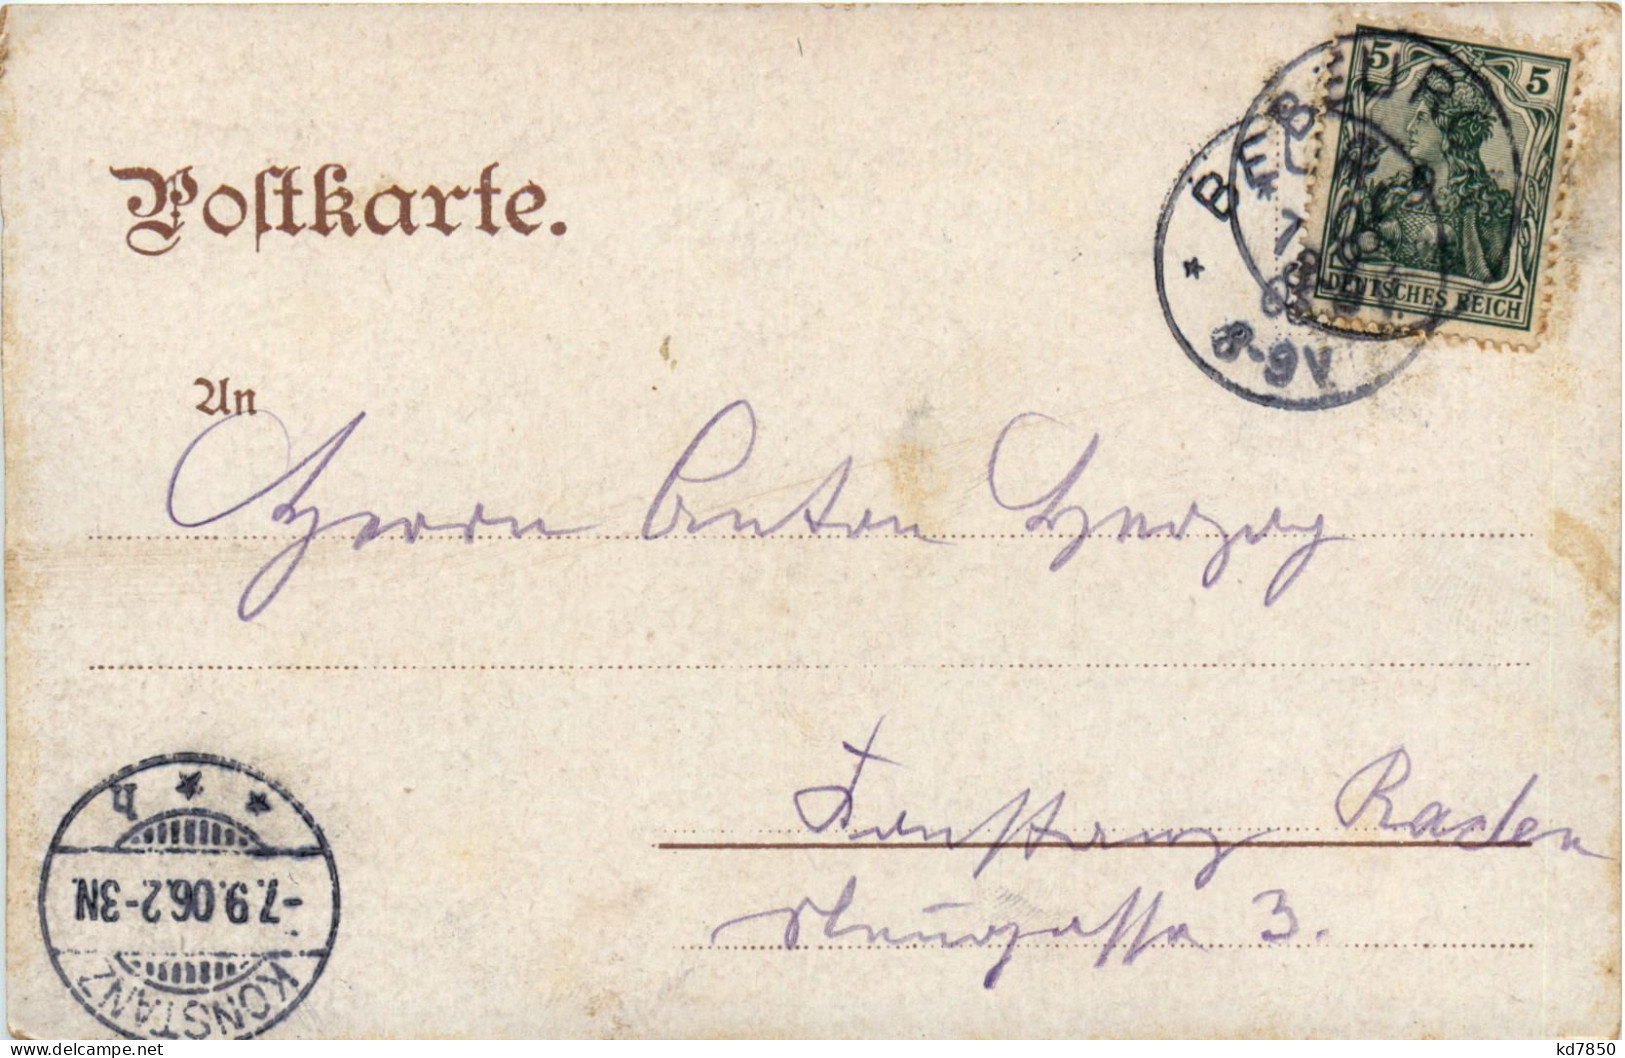 Postkarte.
5 5
DEUTSCHES REICH
8-9V.
An
Herrn Anton Herzog
Konstanz Baden
Neugasse 3.
* * h
-7.9.06.2-3N.
KONSTANZ
delcampe.net
kd7850